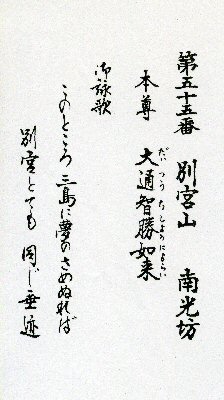 第五十五番 別宮山 南光坊
本尊 大通智勝如来
だいつうちしょうにょらい
御詠歌
このところ 三島に夢のさめぬれば
別宮とても 同じ垂迹